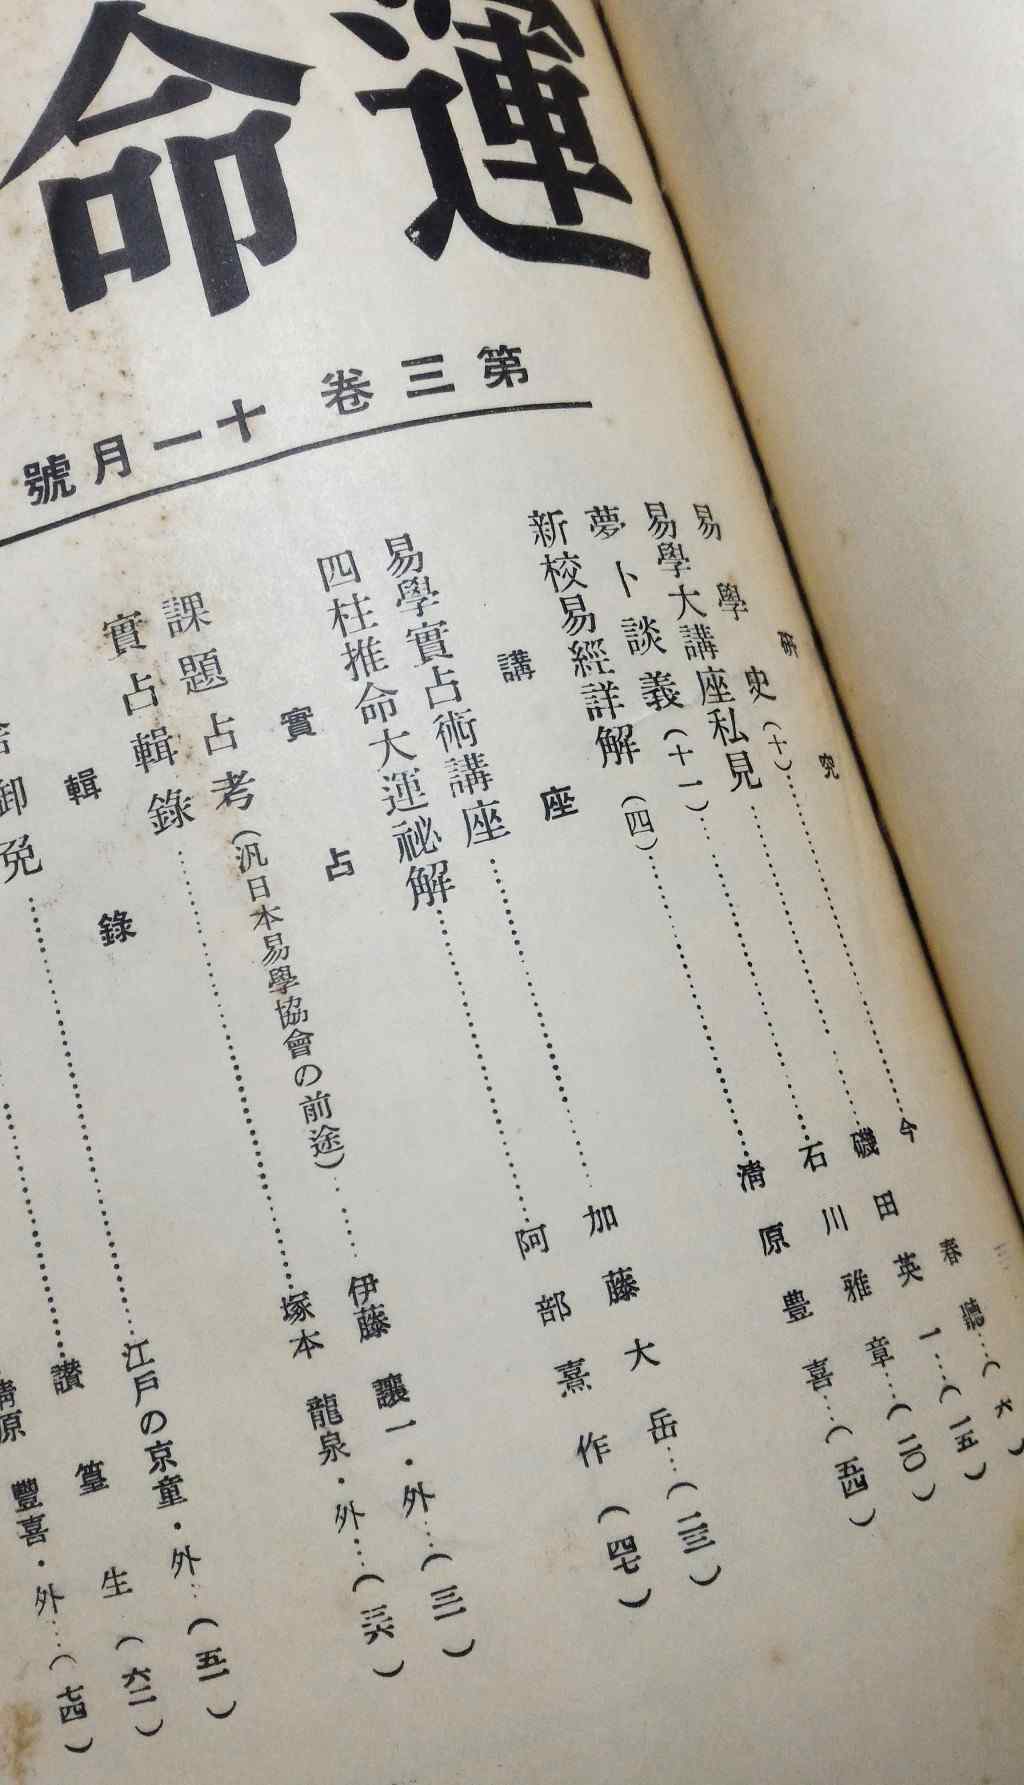 運命
第三卷 十一月號
研究
易學史(十)……今春聽…(六)
易學大講座私見……磯田英一…(一五)
夢卜談義(十一)……石川雅章…(二〇)
新校易經詳解(四)……清原豊喜…(五四)
講座
易學實占術講座……加藤大岳…(二三)
四柱推命大運祕解……阿部熹作(四七)
實占
課題占考(汎日本易學協會の前途)……伊藤讓一・外…(三一)
實占輯錄……塚本龍泉・外…(三六)
輯錄
御免……江戸の京童・外…(五一)
讃篁生(六二)
清原豐喜・外…(七四)